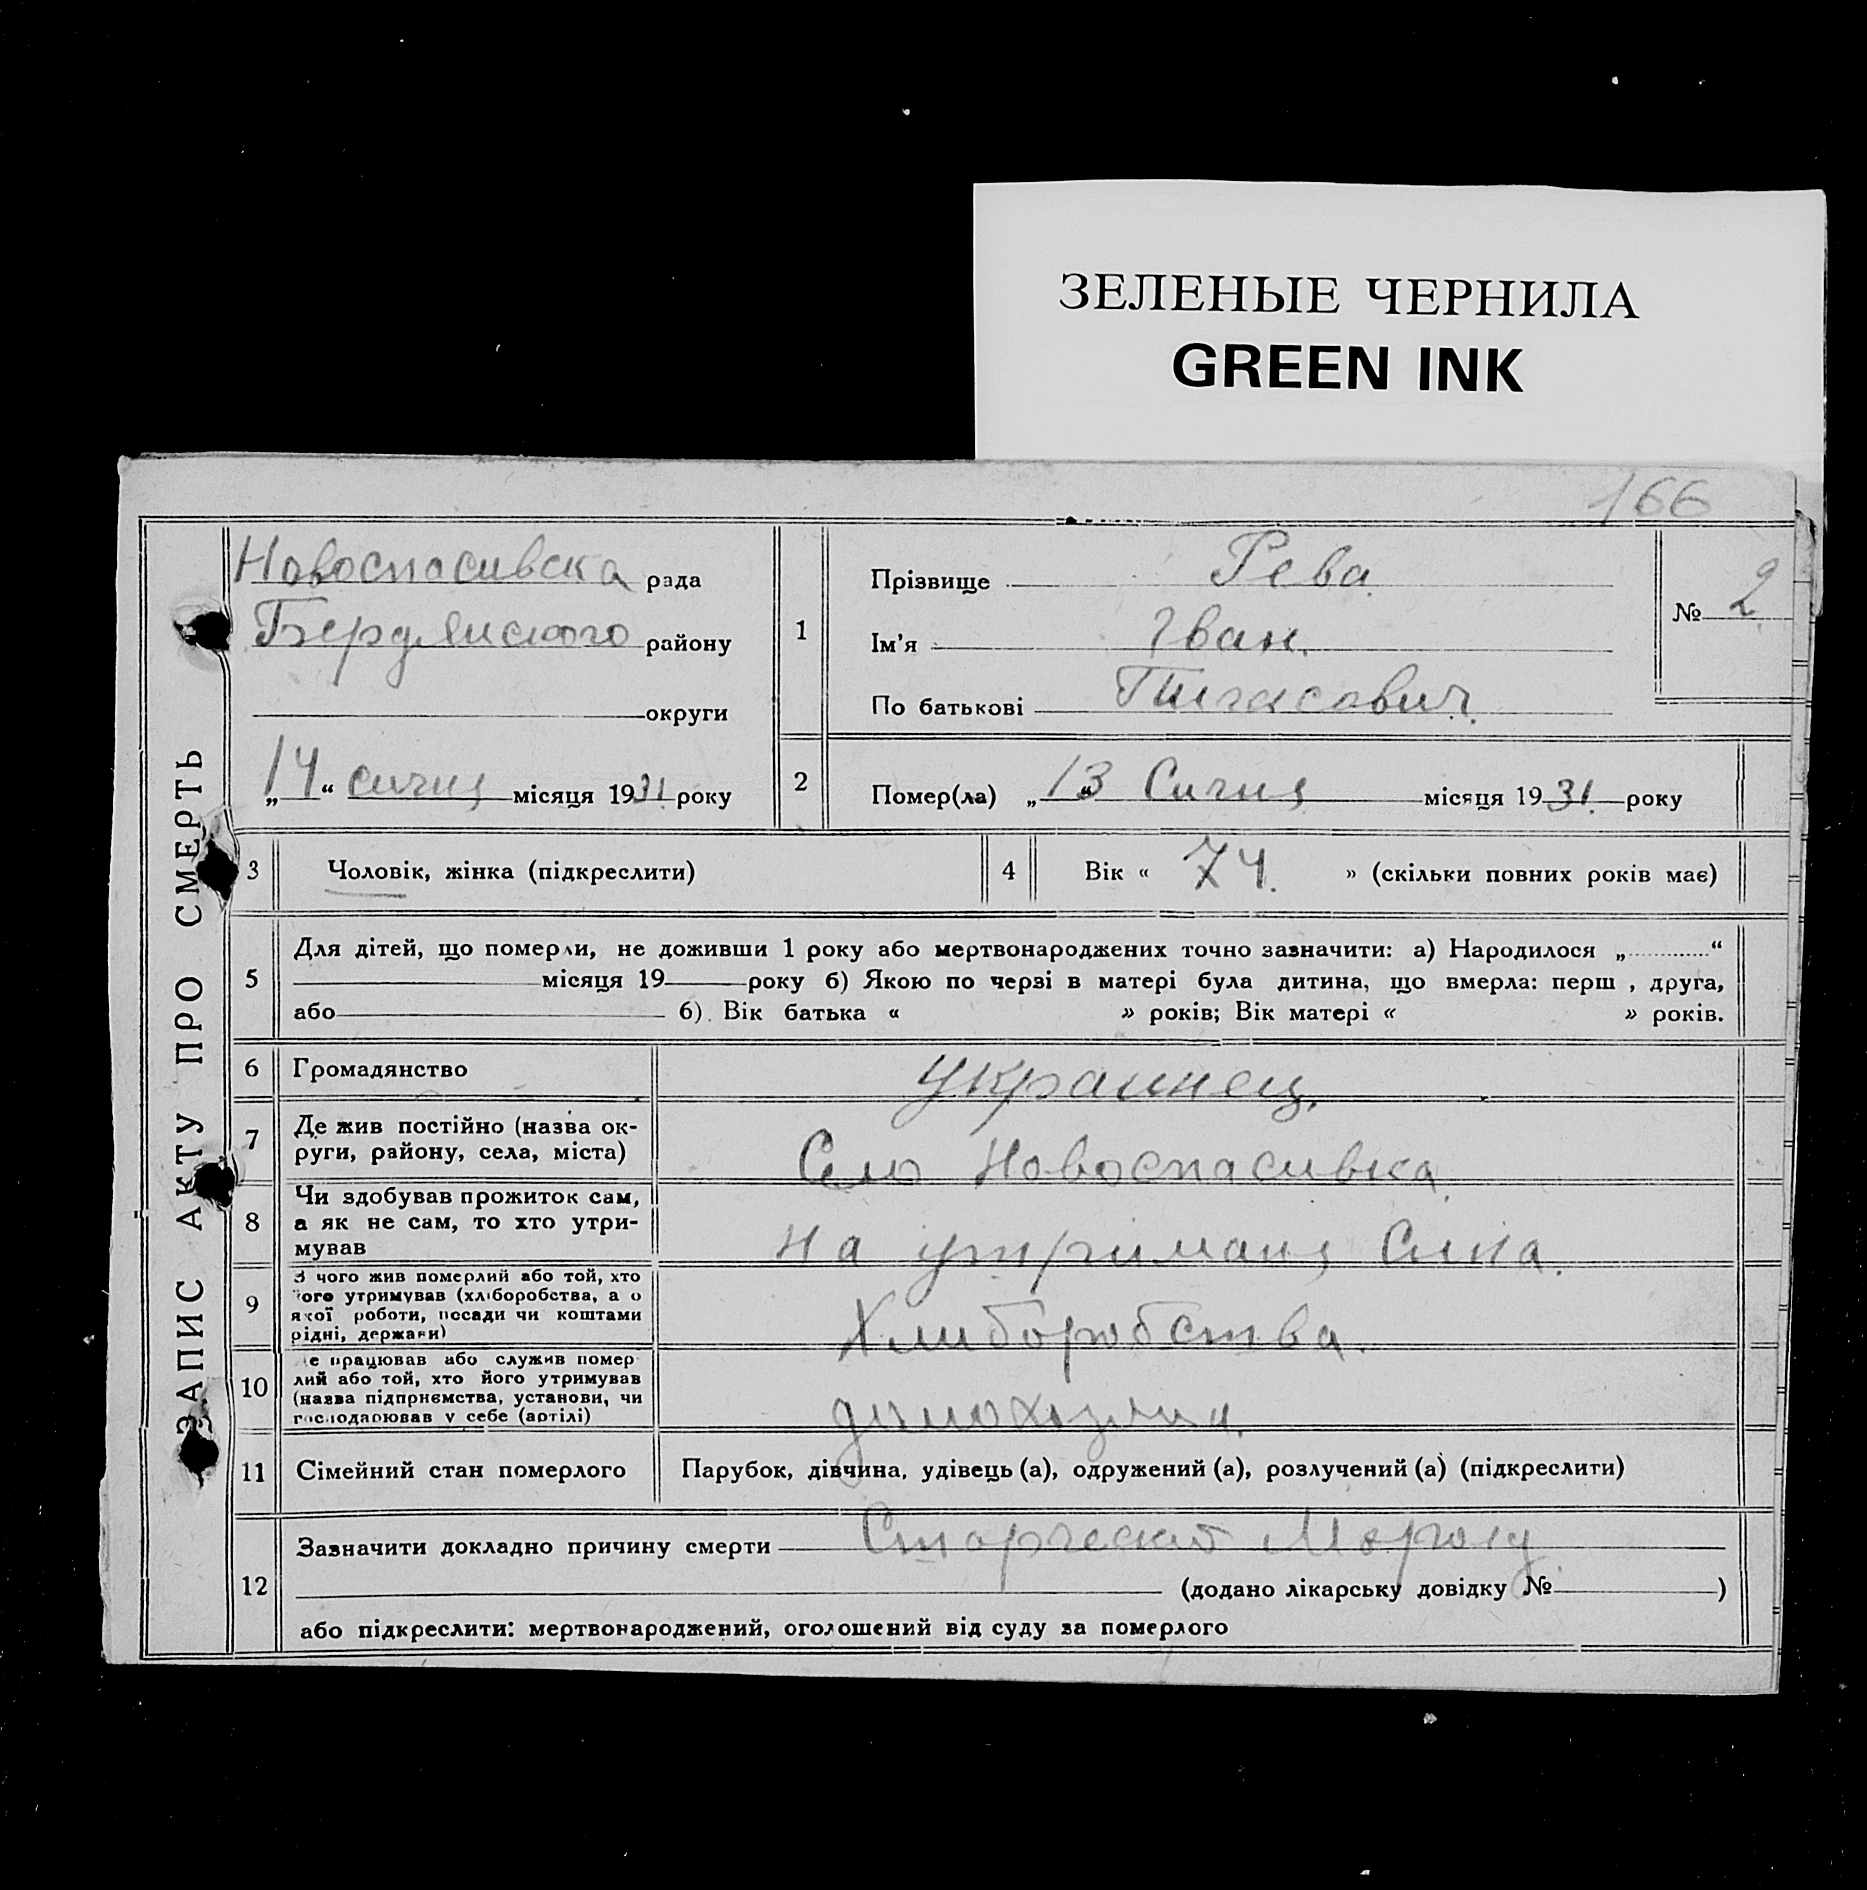 ЗЕЛЕНЫЕ ЧЕРНИЛА
GREEN INK
166
ЗАПИС АКТУ ПРО СМЕРТЬ
Новоспасивска рада
Бердянского району
округи
„14“ сичня місяця 1931 року
1
Прізвище Рева.
Ім'я Іван.
По батькові
№ 2
2
Помер(ла) „13“ Сичня місяця 1931. року
3
Чоловік, жінка (підкреслити)
4
Вік « 74. » (скільки повних років має)
5
Для дітей, що померли, не доживши 1 року або мертвонароджених точно зазначити: а) Народилося „ “
місяця 19 року б) Якою по черзі в матері була дитина, що вмерла: перш , друга,
або б). Вік батька « » років; Вік матері « » років.
6
Громадянство
украинец.
7
Де жив постійно (назва ок-
руги, району, села, міста)
Село Новоспасивка.
8
Чи здобував прожиток сам,
а як не сам, то хто утри-
мував
На утриманя Сина.
9
З чого жив померлий або той, хто
його утримував (хліборобства, а о
якої роботи, посади чи коштами
рідні, держави)
Хлиборобства.
10
е працював або служив помер
лий або той, хто його утримував
(назва підприємства, установи, чи
господарював у себе (артілі)
11
Сімейний стан померлого
Парубок, дівчина, удівець (а), одружений (а), розлучений (а) (підкреслити)
12
Зазначити докладно причину смерти
(додано лікарську довідку № )
або підкреслити: мертвонароджений, оголошений від суду за померлого